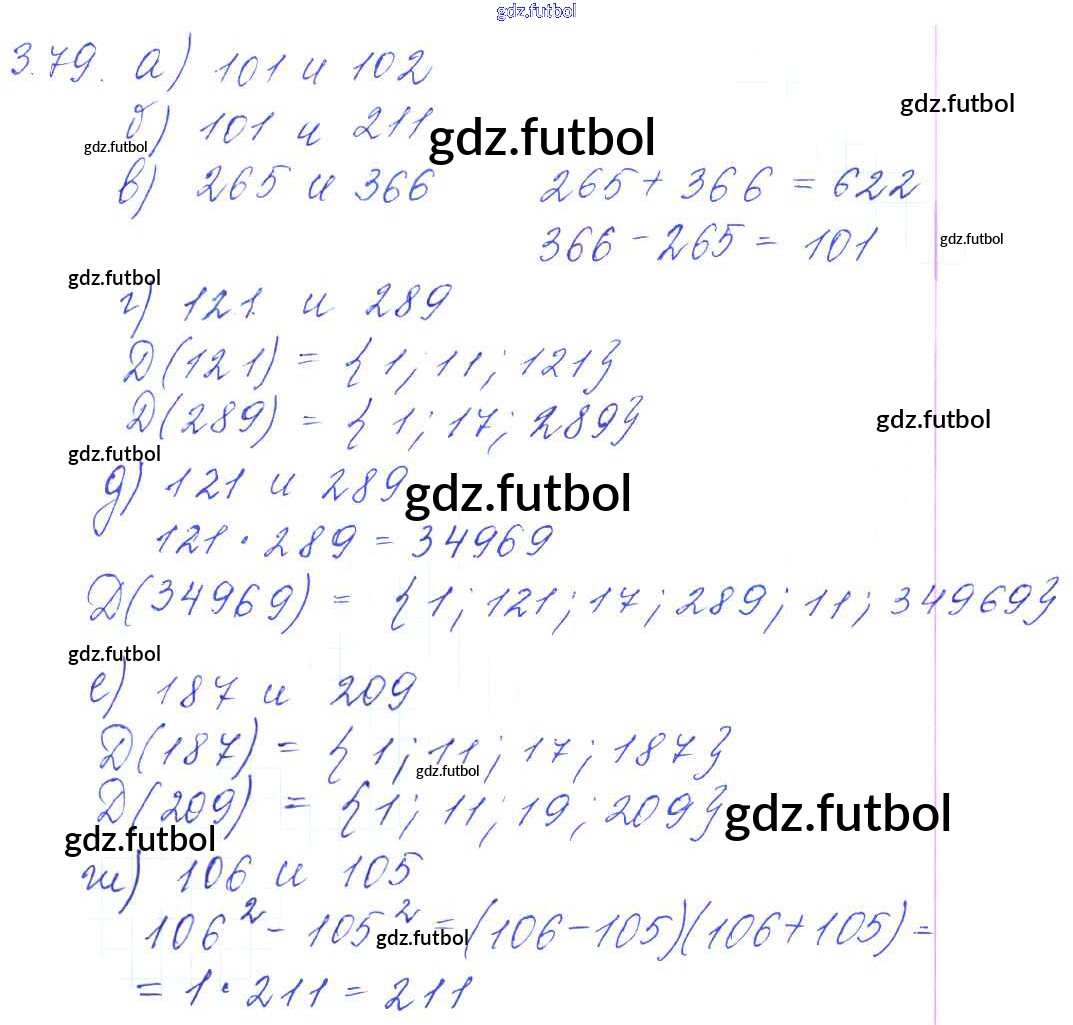 gdz.futbol
3.79. а) 101 и 102
gdz.futbol
б) 101 и 211
gdz.futbol
gdz.futbol
в) 265 и 366 265 + 366 = 622
366 - 265 = 101
gdz.futbol
gdz.futbol
г) 121 и 289
Д(121) = {1; 11; 121}
Д(289) = {1; 17; 289}
gdz.futbol
gdz.futbol
д) 121 и 289
gdz.futbol
121 · 289 = 34969
Д(34969) = {1; 121; 17; 289; 11; 34969}
gdz.futbol
е) 187 и 209
Д(187) = {1; 11; 17; 187}
gdz.futbol
Д(209) = {1; 11; 19; 209}
gdz.futbol
gdz.futbol
ж) 106 и 105
106² - 105² = (106 - 105)(106 + 105) =
gdz.futbol
= 1 · 211 = 211